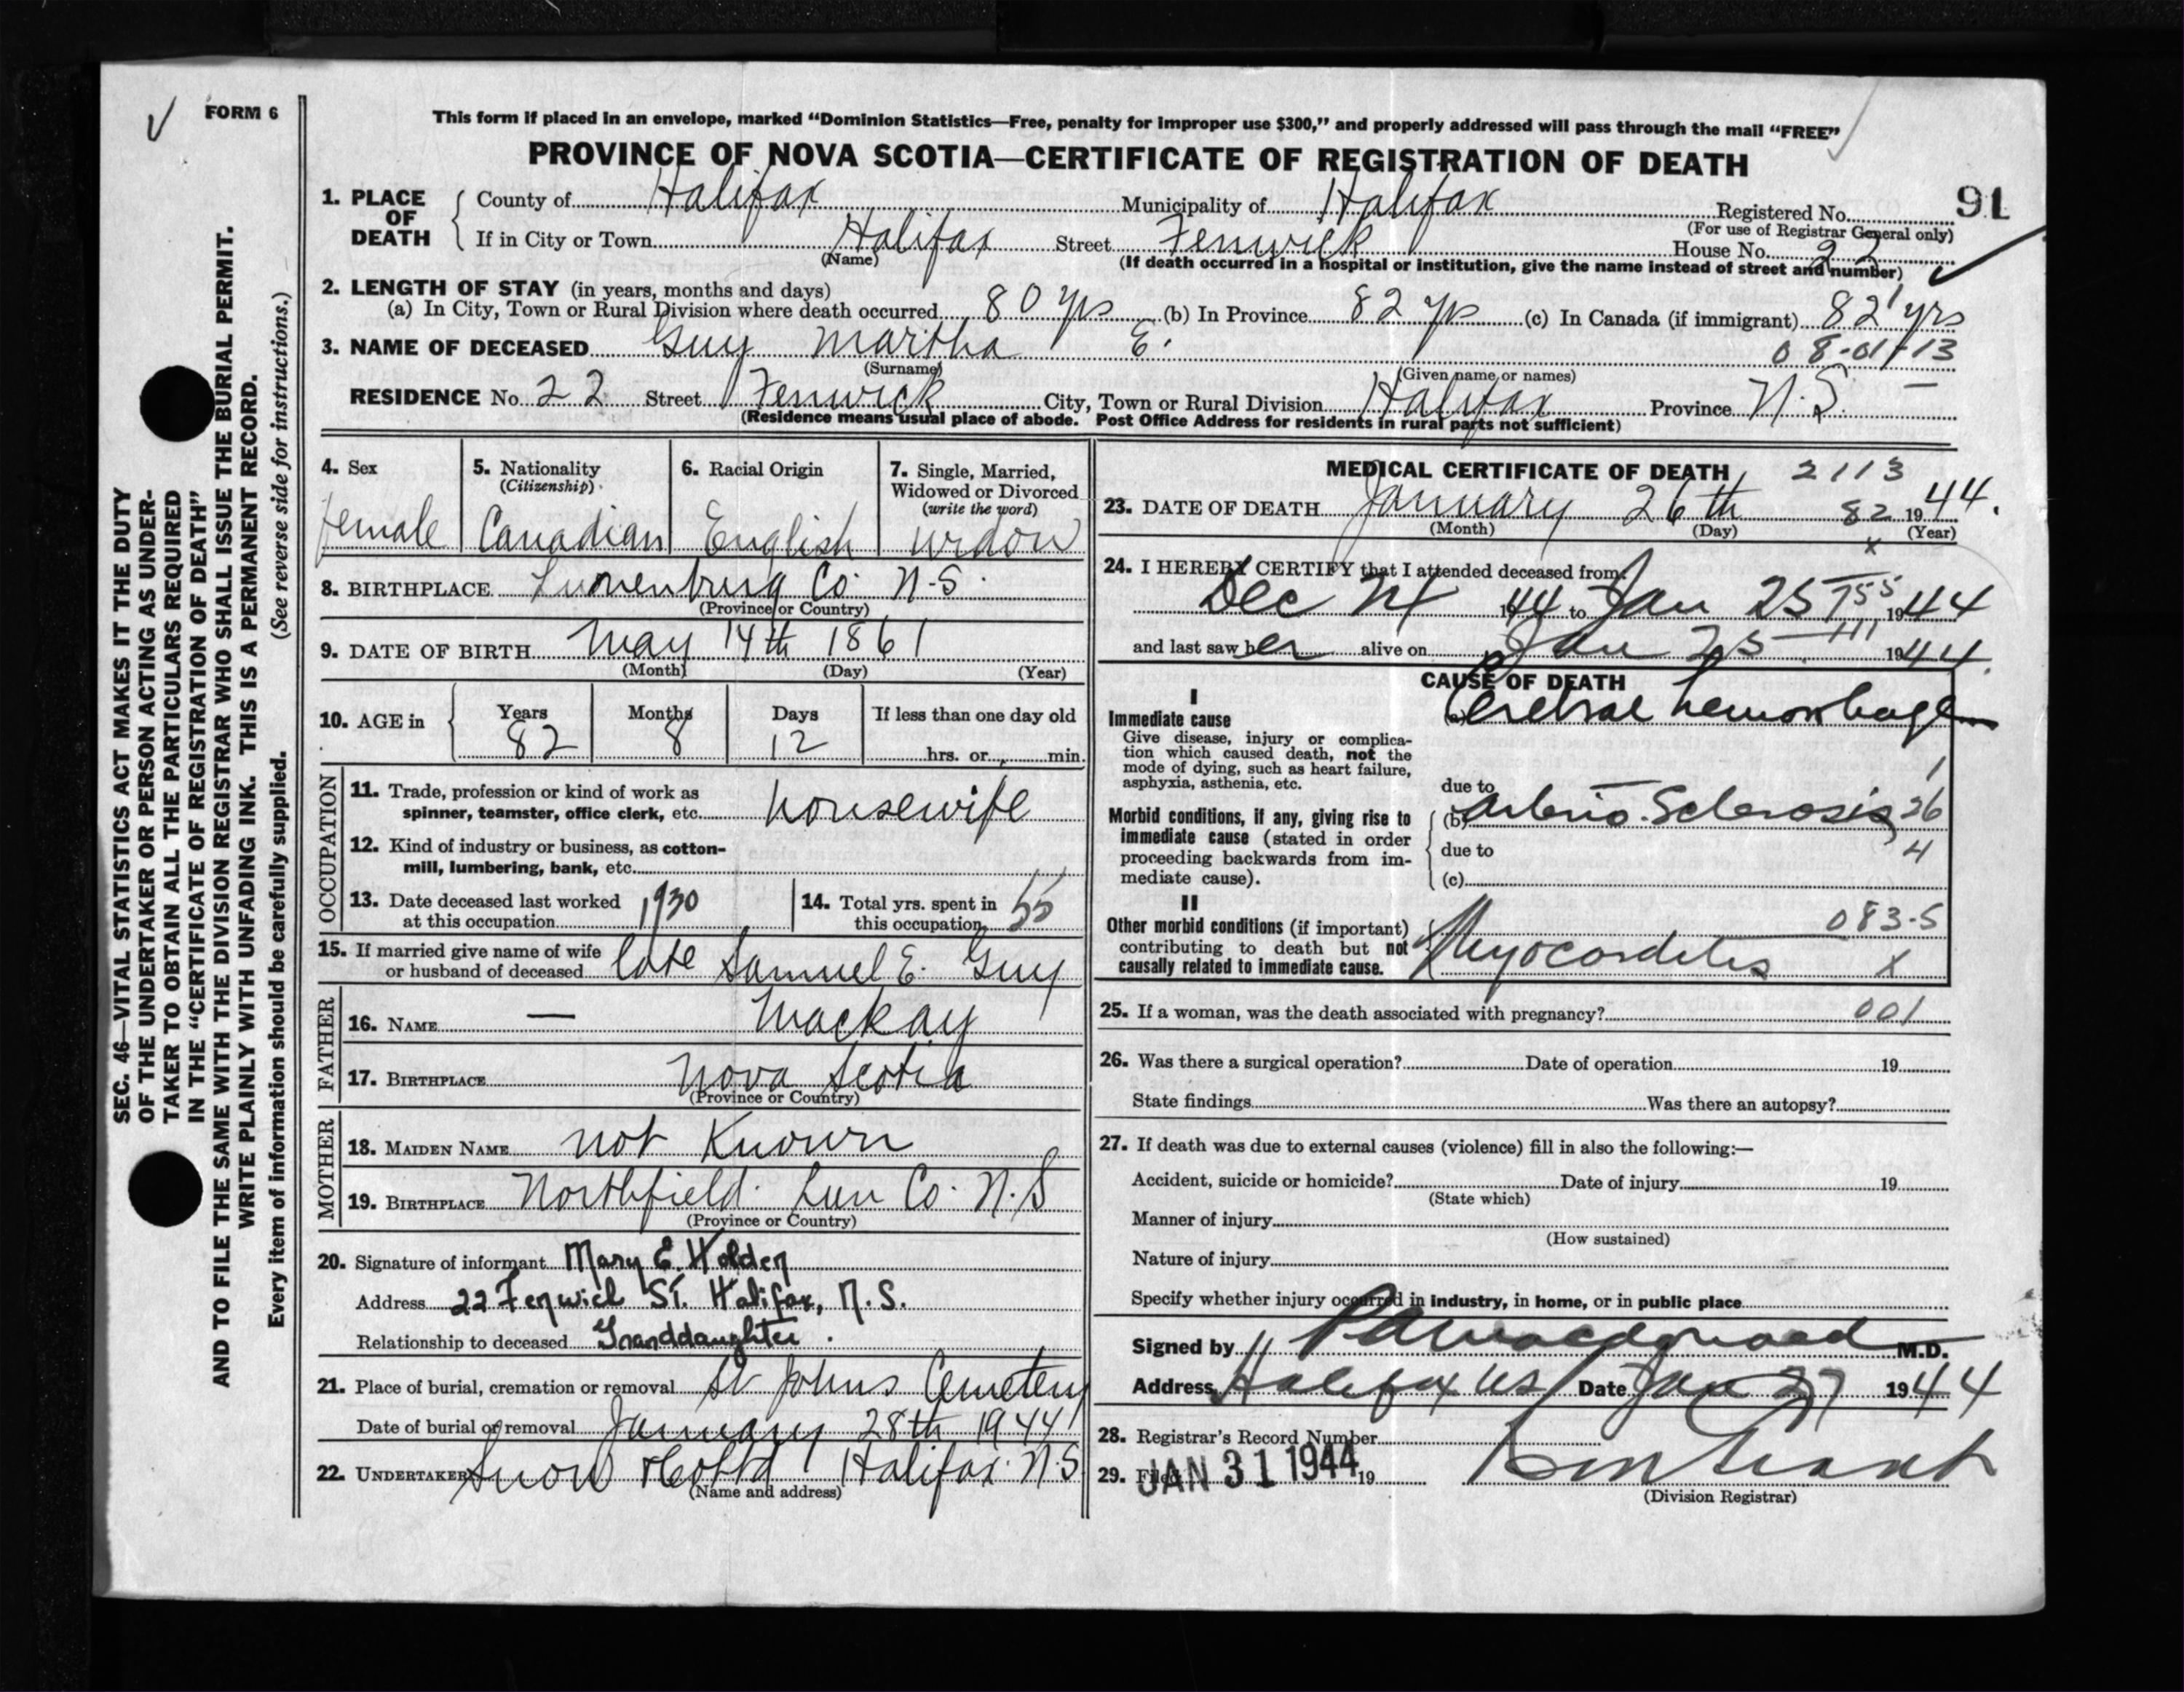 FORM 6
This form if placed in an envelope, marked “Dominion Statistics—Free, penalty for improper use $300,” and properly addressed will pass through the mail “FREE”
PROVINCE OF NOVA SCOTIA—CERTIFICATE OF REGISTRATION OF DEATH
91
1. PLACE OF DEATH
County of Halifax Municipality of Halifax Registered No.
(For use of Registrar General only)
If in City or Town Halifax Street Fenwick House No. 22
(Name) (If death occurred in a hospital or institution, give the name instead of street and number)
2. LENGTH OF STAY (in years, months and days)
(a) In City, Town or Rural Division where death occurred 80 yrs (b) In Province 82 yrs (c) In Canada (if immigrant) 82 yrs
3. NAME OF DECEASED Guy Martha E. 08-01-13
(Surname) (Given name or names)
RESIDENCE No. 22 Street Fenwick City, Town or Rural Division Halifax Province N.S.
(Residence means usual place of abode. Post Office Address for residents in rural parts not sufficient)
4. Sex
female
5. Nationality
(Citizenship)
Canadian
6. Racial Origin
English
7. Single, Married,
Widowed or Divorced
(write the word)
widow
8. BIRTHPLACE Lunenburg Co. N.S.
(Province or Country)
9. DATE OF BIRTH May 14th 1861
(Month) (Day) (Year)
10. AGE in
Years Months Days If less than one day old
82 8 12 hrs. or min.
OCCUPATION
11. Trade, profession or kind of work as
spinner, teamster, office clerk, etc. housewife
12. Kind of industry or business, as cotton-
mill, lumbering, bank, etc.
13. Date deceased last worked
at this occupation 1930
14. Total yrs. spent in
this occupation 55
15. If married give name of wife
or husband of deceased late Samuel E. Guy
FATHER
16. NAME — Mackay
17. BIRTHPLACE Nova Scotia
(Province or Country)
MOTHER
18. MAIDEN NAME not Known
19. BIRTHPLACE Northfield Lun Co. N.S
(Province or Country)
20. Signature of informant Mary E. Holden
Address 22 Fenwick St. Halifax, N.S.
Relationship to deceased Granddaughter.
21. Place of burial, cremation or removal St Johns Cemetery
Date of burial or removal January 28th 1944
22. UNDERTAKER Snow & Co Ltd Halifax N.S
(Name and address)
MEDICAL CERTIFICATE OF DEATH 2113
23. DATE OF DEATH January 26th 82 1944.
(Month) (Day) (Year)
x
24. I HEREBY CERTIFY that I attended deceased from
Dec 1944 to Jan 25 1944
and last saw her alive on Jan 25 1944
CAUSE OF DEATH
I
Immediate cause
Give disease, injury or complica-
tion which caused death, not the
mode of dying, such as heart failure,
asphyxia, asthenia, etc.
(a) Cerebral hemorrhage
due to
Morbid conditions, if any, giving rise to
immediate cause (stated in order
proceeding backwards from im-
mediate cause).
(b) Arterio. Sclerosis 26
due to 4
(c)
II
Other morbid conditions (if important)
contributing to death but not
causally related to immediate cause.
083-5
Myocarditis x
25. If a woman, was the death associated with pregnancy? 001
26. Was there a surgical operation? Date of operation 19
State findings Was there an autopsy?
27. If death was due to external causes (violence) fill in also the following:—
Accident, suicide or homicide? Date of injury 19
(State which)
Manner of injury
(How sustained)
Nature of injury
Specify whether injury occurred in industry, in home, or in public place
Signed by Macdonald M.D.
Address Halifax NS Date Jan 27 1944
28. Registrar's Record Number
29. Filed JAN 31 1944 19
(Division Registrar)
SEC. 46—VITAL STATISTICS ACT MAKES IT THE DUTY
OF THE UNDERTAKER OR PERSON ACTING AS UNDER-
TAKER TO OBTAIN ALL THE PARTICULARS REQUIRED
IN THE “CERTIFICATE OF REGISTRATION OF DEATH”
AND TO FILE THE SAME WITH THE DIVISION REGISTRAR WHO SHALL ISSUE THE BURIAL PERMIT.
WRITE PLAINLY WITH UNFADING INK. THIS IS A PERMANENT RECORD.
Every item of information should be carefully supplied. (See reverse side for instructions.)